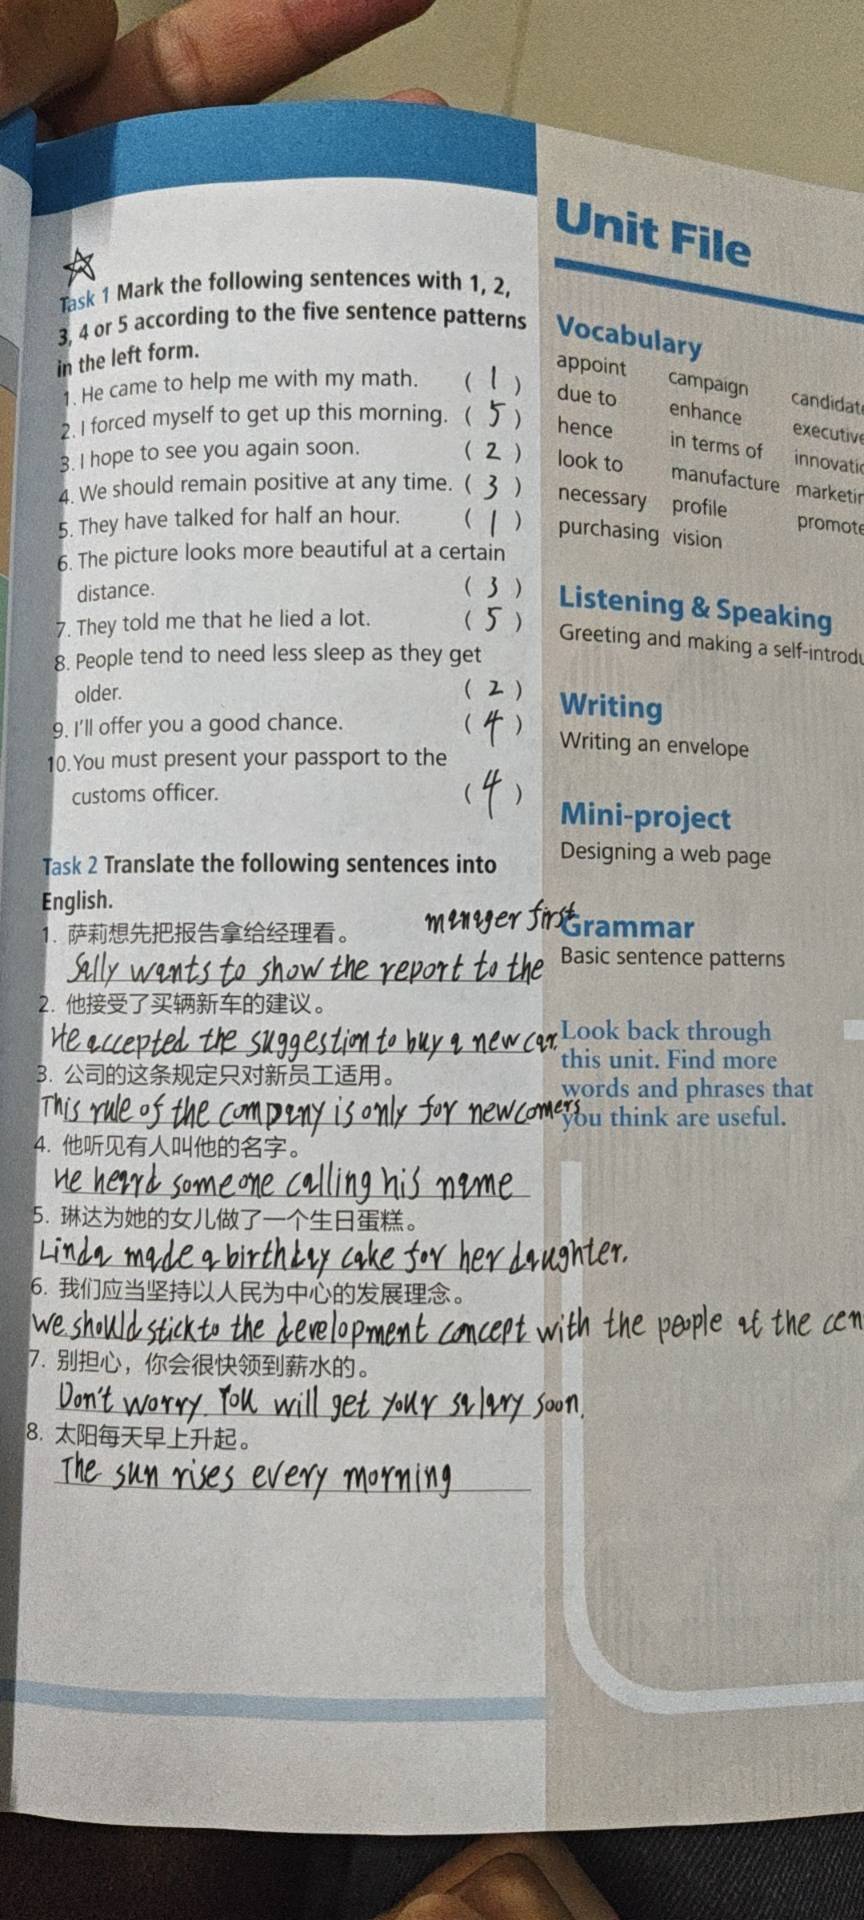 Unit File
Task 1 Mark the following sentences with 1, 2,
3, 4 or 5 according to the five sentence patterns
in the left form.
1. He came to help me with my math. ( 1 )
2. I forced myself to get up this morning. ( 5 )
3. I hope to see you again soon. ( 2 )
4. We should remain positive at any time. ( 3 )
5. They have talked for half an hour. ( 1 )
6. The picture looks more beautiful at a certain
distance. ( 3 )
7. They told me that he lied a lot. ( 5 )
8. People tend to need less sleep as they get
older. ( 2 )
9. I'll offer you a good chance. ( 4 )
10. You must present your passport to the
customs officer. ( 4 )
Task 2 Translate the following sentences into
English.
1. 萨莉想先把报告拿给经理看。
manager first
Sally wants to show the report to the
2. 他接受了买辆新车的建议。
He accepted the suggestion to buy a new car.
3. 公司的这条规定只对新员工适用。
This rule of the company is only for newcomers
4. 他听见有人叫他的名字。
He heard someone calling his name
5. 琳达为她的女儿做了一个生日蛋糕。
Linda made a birthday cake for her daughter.
6. 我们应当坚持以人民为中心的发展理念。
We should stick to the development concept with the people at the cen
7. 别担心，你会很快领到薪水的。
Don't worry. You will get your salary soon.
8. 太阳每天早上升起。
The sun rises every morning
Vocabulary
appoint campaign candidate
due to enhance executive
hence in terms of innovatio
look to manufacture marketin
necessary profile promote
purchasing vision
Listening & Speaking
Greeting and making a self-introdu
Writing
Writing an envelope
Mini-project
Designing a web page
Grammar
Basic sentence patterns
Look back through
this unit. Find more
words and phrases that
you think are useful.